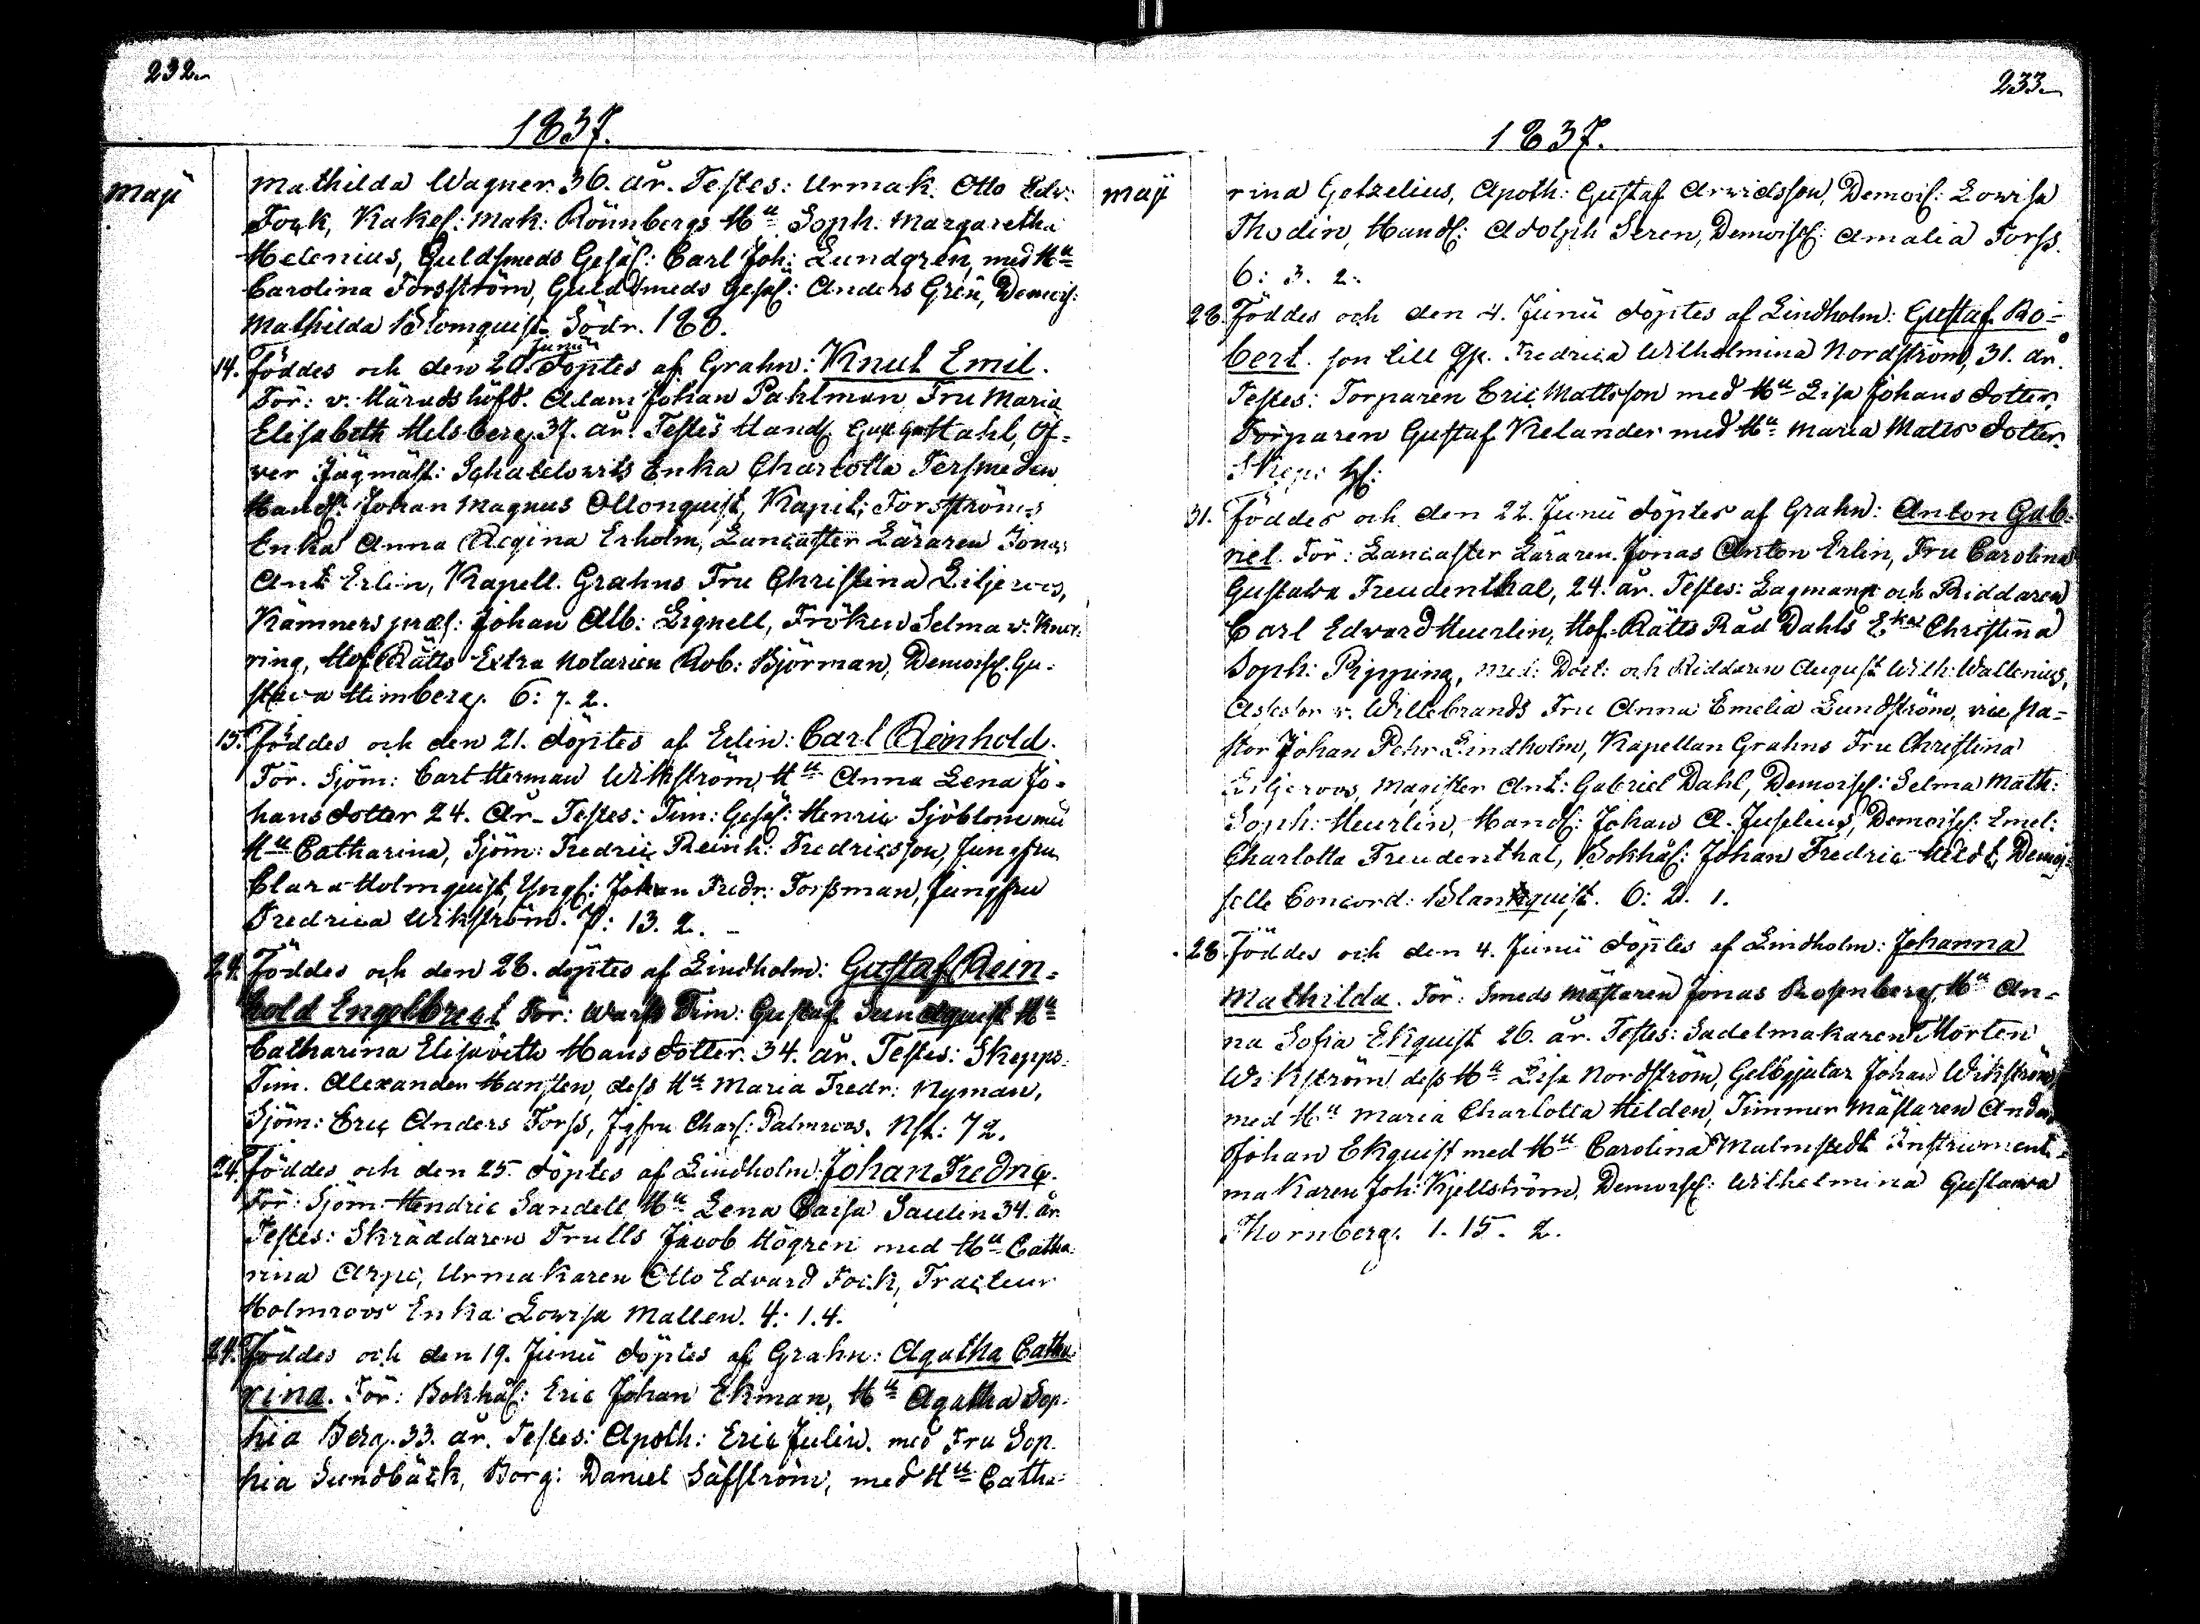 232.
1837.
Maji
Mathilda Wagner. 36. år. Testes: Urmak. Otto Edv:
Fock, Kakel: Mak: Rönnbergs Hu Soph. Margaretha
Helenius, Guldsmeds Gesäl: Carl Joh: Lundgren, med Hu
Carolina Forsström, Guldsmeds Gesäl: Anders Grén, Demois:
Mathilda Blomquist. Södr. 188.
14. Föddes och den 20. Junii döptes af Grahn: Knut Emil.
För: v. Häradshöfd. Adam Johan Pahlman Fru Maria
Elisabeth Helsberg 37. år. Testes Handl Gust Hahl, Öf-
ver Jägmäst: Schatelowits Enka Charlotta Tersmeden
Handl: Johan Magnus Ollonquist, Kapit: Forsströms
Enka Anna Regina Erholm, Lancaster Läraren Jonas
Ant Erlin, Kapell. Grahns Fru Christina Liljeroos,
Kämners præs: Johan Alb: Lignell, Fröken Selma v. Knor-
ring, Hof Rätts Extra Notarien Rob: Björman, Demoisel. Gu-
stava Himberg. 6: 7. 2.
15. Föddes och den 21. döptes af Erlin: Carl Reinhold.
För. Sjöm: Carl Herman Wikström, Hu Anna Lena Jo-
hansdotter 24. År. Testes: Tim: Gesäl: Henric Sjöblom med
Hu Catharina, Sjöm: Fredric Reinh: Fredricsson, Jungfru
Clara Holmquist, Yngl: Johan Fredr: Forssman, Jungfru
Fredrica Wikström. 7: 13. 2.
24. Föddes och den 28. döptes af Lindholm: Gustaf Rein-
hold Engelbrect För: Warfs Tim: Gustaf Sundquist Hu
Catharina Elisabeth Hansdotter. 34. år. Testes: Skepps
Tim. Alexander Hansten, dess Hu Maria Fredr: Nyman,
Sjöm: Eric Anders Forss, Jgfru Charl: Palmroos. Nst: 72.
24. Föddes och den 25. döptes af Lindholm: Johan Fredric.
För: Sjöm Hendric Sandell Hu Lena Caisa Saulin 34. år
Testes: Skräddaren Trulls Jacob Högren med Hu Catha-
rina Arpe, Urmakaren Otto Edvard Fock, Tracteur
Holmroos Enka Lowisa Mallen. 4: 1. 4.
24. Föddes och den 19. Junii döptes af Grahn: Agatha Catha-
rina. För: Bokhål: Eric Johan Ekman, Hu Agatha Sop-
hia Berg. 33. år. Testes: Apoth: Eric Julin. med Fru Sop-
hia Sundbäck, Borg: Daniel Säfström, med Hu Catha-
233.
1837.
Maji
rina Getzelius, Apoth: Gustaf Arwidsson, Demois: Lowisa
Thodin, Handl: Adolph Seren, Demoisel: Amalia Forss.
6: 3. 2.
28. Föddes och den 4. Junii döptes af Lindholm: Gustaf Ro-
bert. son till Qp. Fredrica Wilhelmina Nordström, 31. år.
Testes: Torparen Eric Mattsson med Hu Lisa Johans dotter,
Torparen Gustaf Kelander med Hu Maria Matts dotter.
31. Föddes och den 22. Junii döptes af Grahn: Anton Gab-
riel. För: Lancaster Läraren Jonas Anton Erlin, Fru Carolina
Gustava Freudenthal, 24. år. Testes: Lagman och Riddaren
Carl Edvard Heurlin, Hof-Rätts Råd Dahls Eka Christina
Soph: Pipping, Med: Doct: och Riddaren August Wilh: Wallenius,
Assessor v. Willebrands Fru Anna Emelia Lundström, vice Pa-
stor Johan Pehr Lindholm, Kapellan Grahns Fru Christina
Liljeroos, Magister Ant: Gabriel Dahl, Demoisel: Selma Math:
Soph: Heurlin, Handl: Johan A. Juselius, Demoisel: Emel:
Charlotta Freudenthal, Bokhål: Johan Fredric Heldt, Demoi-
selle Concord: Blanquist. 6: 2. 1.
28. Föddes och den 4. Junii döptes af Lindholm: Johanna
Mathilda. För: Smeds Mästaren Jonas Rosenberg, Hu An-
na Sofia Ekquist 26. år. Testes: Sadelmakaren Morten
Wikström dess Hu Lisa Nordström, Gelbgjutar Johan Wikström
med Hu Maria Charlotta Hilden, Timmer Mästaren Anders
Johan Ekquist med Hu Carolina Malmstedt Instrument-
makaren Joh: Kjellström, Demoisel: Wilhelmina Gustawa
Thornberg. 1. 15. 2.